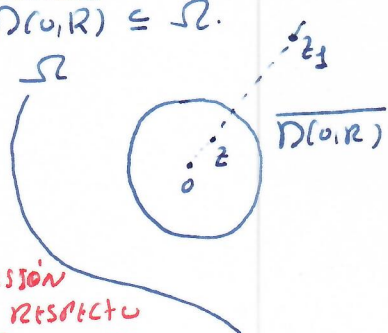 D(0,R) ⊆ Ω.
Ω
z₁
D(0,R)
z
0
SIÓN
RESPECTO